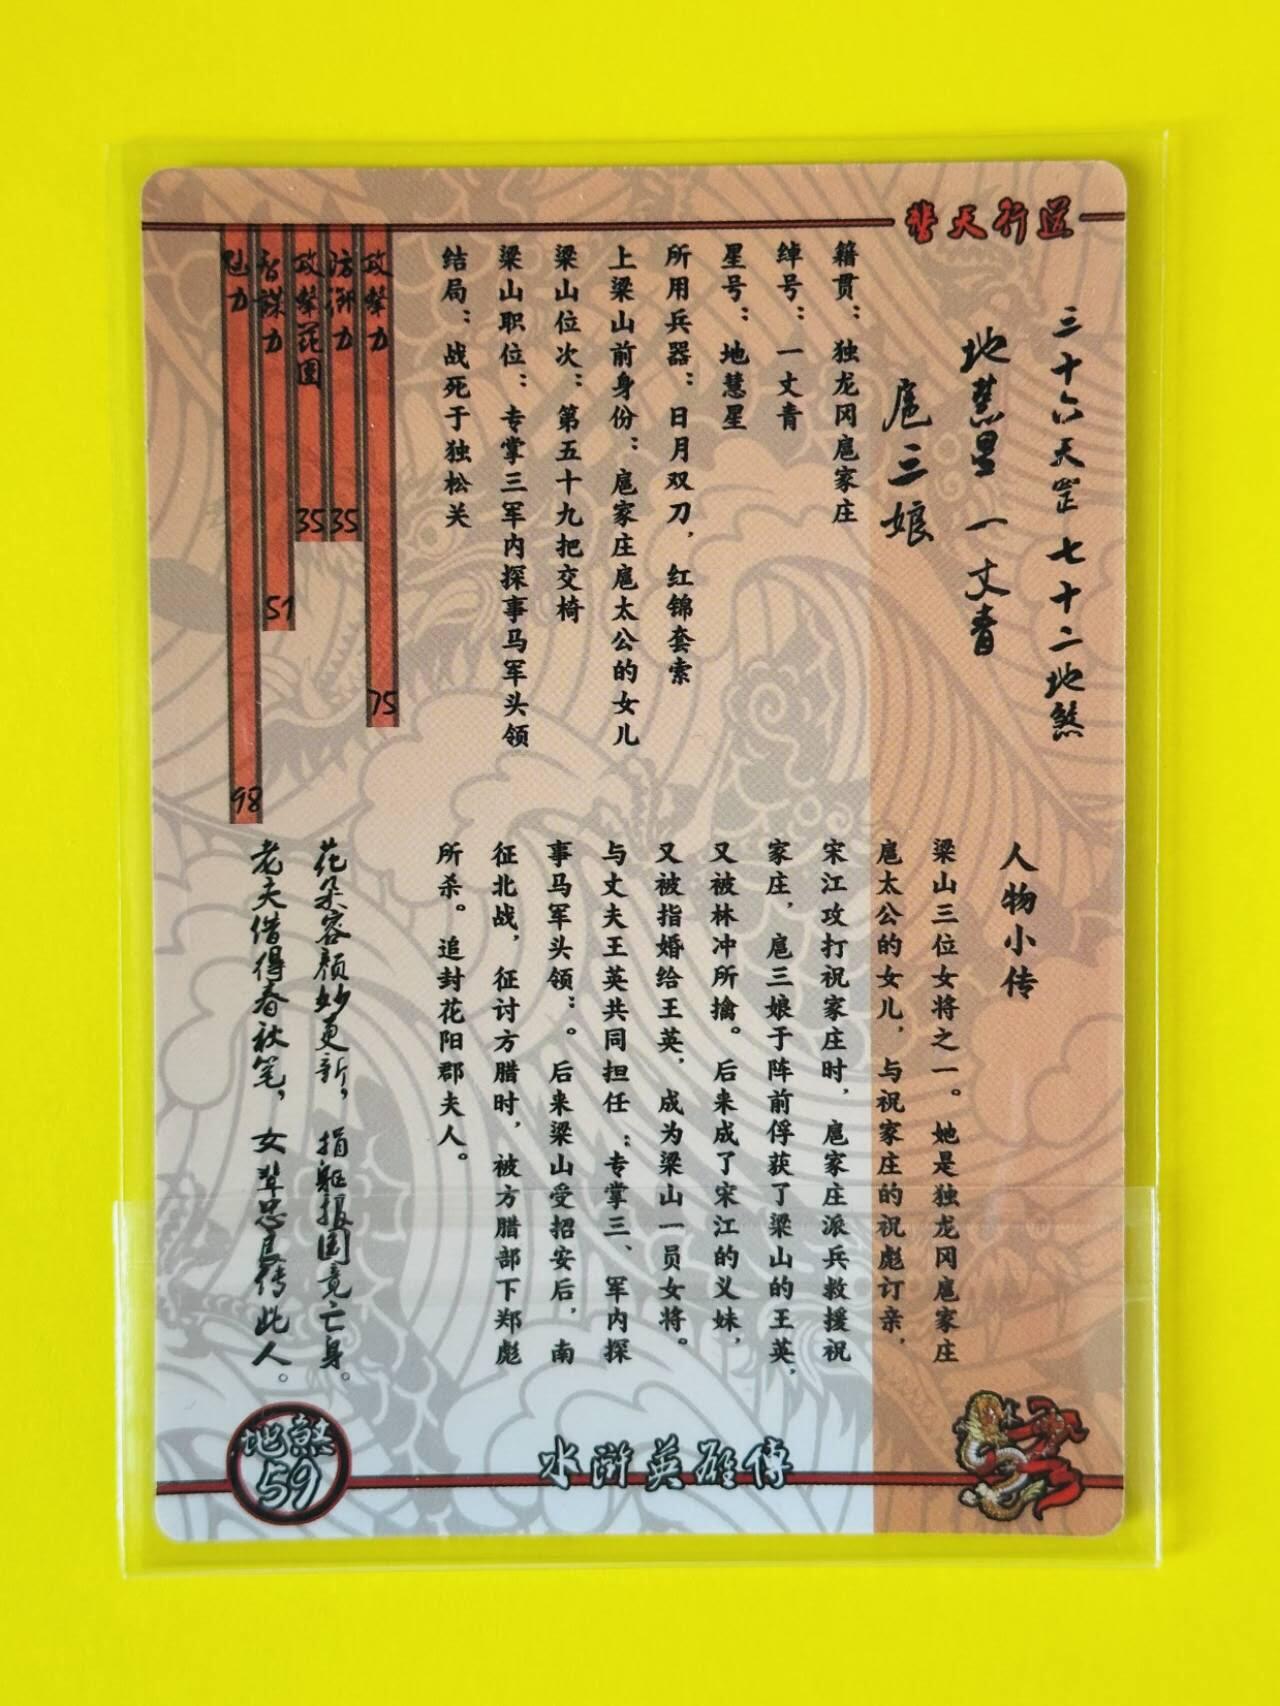 替天行道
三十六天罡 七十二地煞
地慧星 一丈青
扈三娘
籍贯：独龙冈扈家庄
绰号：一丈青
星号：地慧星
所用兵器：日月双刀，红锦套索
上梁山前身份：扈家庄扈太公的女儿
梁山位次：第五十九把交椅
梁山职位：专掌三军内探事马军头领
结局：战死于独松关
攻擊力 75
防御力 35
攻擊范围 35
智謀力 51
魅力 98
人物小传
梁山三位女将之一。她是独龙冈扈家庄
扈太公的女儿，与祝家庄的祝彪订亲，
宋江攻打祝家庄时，扈家庄派兵救援祝
家庄，扈三娘于阵前俘获了梁山的王英，
又被林冲所擒。后来成了宋江的义妹，
又被指婚给王英，成为梁山一员女将。
与丈夫王英共同担任：专掌三、军内探
事马军头领：。后来梁山受招安后，南
征北战，征讨方腊时，被方腊部下郑彪
所杀。追封花阳郡夫人。
花朵容颜妙更新，捐躯报国竟亡身。
老夫借得春秋笔，女辈忠良传此人。
地煞
59
水滸英雄傳